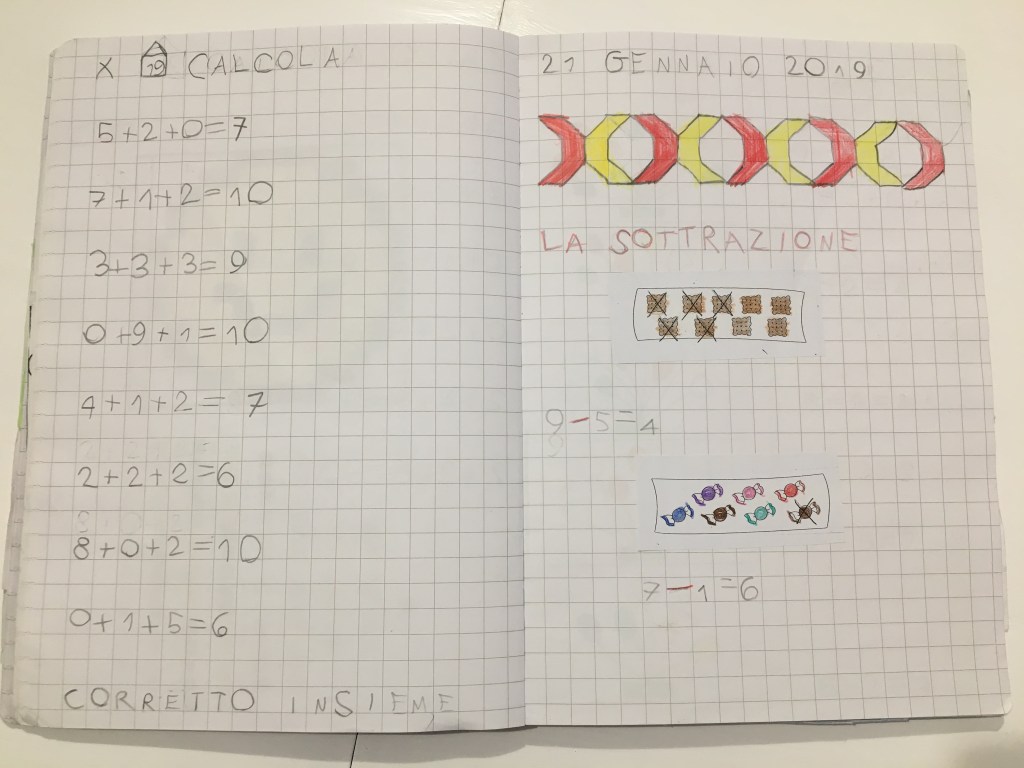 X 19 CALCOLA
5+2+0=7
7+1+2=10
3+3+3=9
0+9+1=10
4+1+2=7
2+2+2=6
8+0+2=10
0+1+5=6
CORRETTO INSIEME
21 GENNAIO 2019
LA SOTTRAZIONE
9-5=4
7-1=6